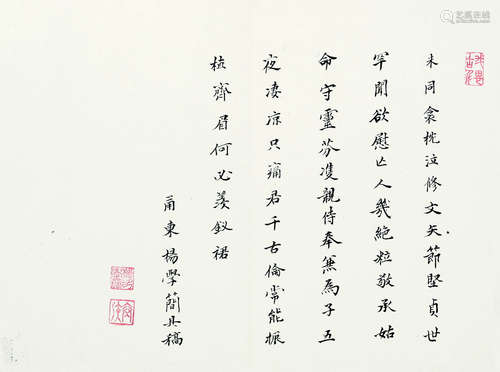 未同衾枕泣修文矢節堅貞世
罕聞欲慰亡人幾絕粒敬承姑
命守靈芬雙親侍奉兼為子五
夜淒凉只誦君千古倫常能振
拡齊眉何必羨釵裙
甬東楊學簡具稿